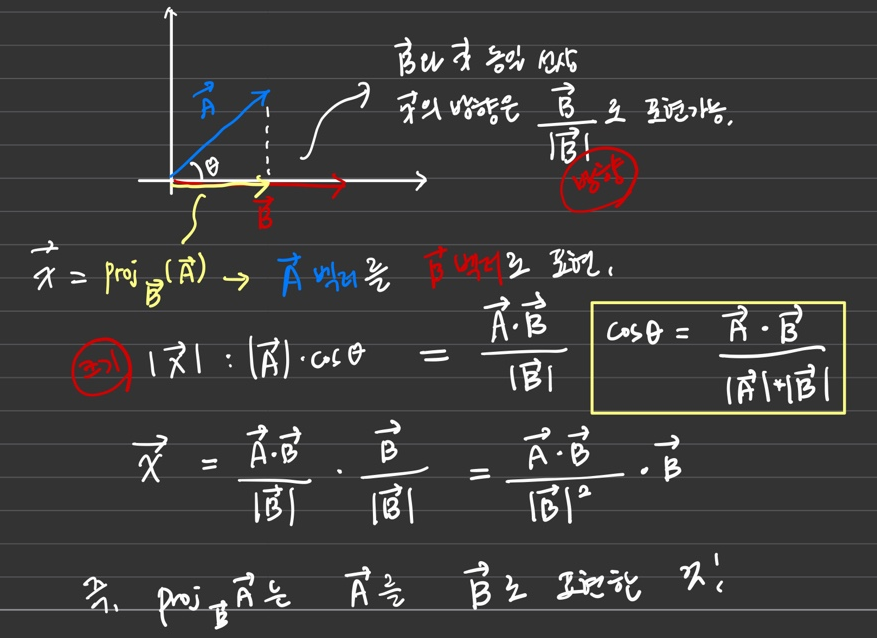 A⃗
θ
B⃗
B⃗와 x⃗ 동일 선상
x⃗의 방향은 B⃗/|B⃗| 로 표현가능.
방향
x⃗ = proj_B⃗(A⃗) → A⃗ 벡터를 B⃗ 벡터로 표현.
크기 |x⃗| : |A⃗|·cosθ = A⃗·B⃗/|B⃗|
cosθ = A⃗·B⃗/|A⃗|*|B⃗|
x⃗ = A⃗·B⃗/|B⃗| · B⃗/|B⃗| = A⃗·B⃗/|B⃗|² · B⃗
즉, proj_B⃗ A⃗는 A⃗를 B⃗로 표현한 것!